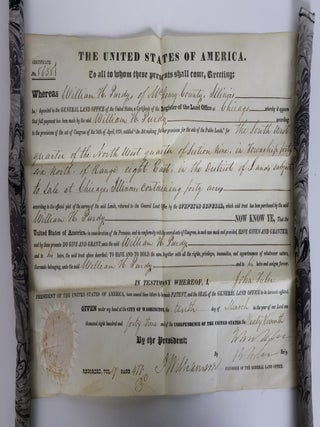 THE UNITED STATES OF AMERICA.
CERTIFICATE
No.
To all to whom these presents shall come, Greeting:
WHEREAS William H. Purdy, of McHenry County, Illinois
ha deposited in the GENERAL LAND OFFICE of the United States, a Certificate of the Register of the Land Office at Chicago whereby it appears
that full payment has been made by the said William H. Purdy according to
the provisions of the act of Congress of the 24th of April, 1820, entitled "An Act making further provision for the sale of the Public Lands," for The South West
quarter of the North West quarter of Section three, in Township forty
six North, of Range eight East, in the District of Lands subject
to Sale at Chicago, Illinois, containing forty acres
according to the official plat of the survey of the said Lands, returned to the General Land Office by the SURVEYOR GENERAL, which said tract has been purchased by the said
William H. Purdy NOW KNOW YE, That the
United States of America, in consideration of the Premises, and in conformity with the several acts of Congress, in such case made and provided, HAVE GIVEN AND GRANTED,
and by these presents DO GIVE AND GRANT, unto the said William H. Purdy
and to his heirs, the said tract above described: TO HAVE AND TO HOLD the same, together with all the rights, privileges, immunities, and appurtenances of whatsoever
nature, thereunto belonging, unto the said William H. Purdy and to his heirs and assigns forever.
IN TESTIMONY WHEREOF, I, John Tyler
PRESIDENT OF THE UNITED STATES OF AMERICA, have caused these Letters to be made PATENT, and the SEAL of the GENERAL LAND OFFICE to be hereunto affixed.
GIVEN under my hand, at the CITY OF WASHINGTON, the tenth day of March in the Year of our Lord one
thousand eight hundred and forty three and of the INDEPENDENCE OF THE UNITED STATES the Sixty Seventh
By the President: John Tyler
By Sec'y.
J. Williamson RECORDER OF THE GENERAL LAND OFFICE.
RECORDED, VOL. 9 PAGE